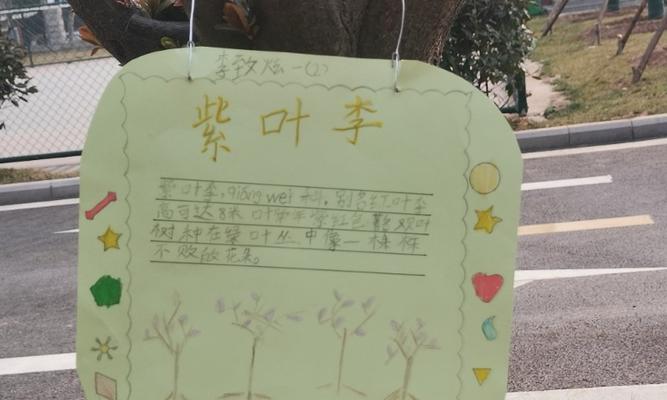 李致炫一(2)
紫叶李
紫叶李,qiáng wei 科,别名红叶李
高可达8米 叶常年紫红色 观叶
树种在绿叶丛中像一株株
不败的花朵。